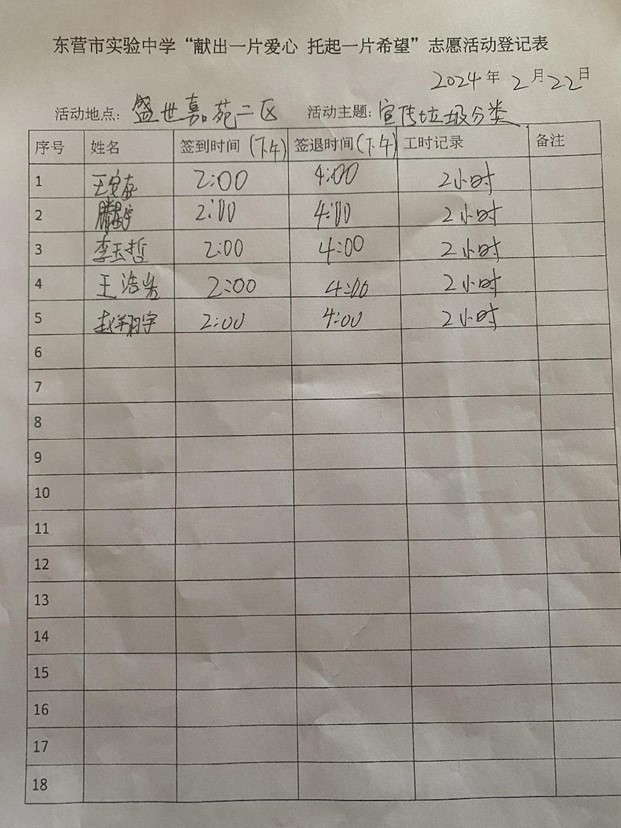 东营市实验中学“献出一片爱心 托起一片希望”志愿活动登记表
2024年2月22日
活动地点：盛世嘉苑二区 活动主题：宣传垃圾分类
序号 姓名 签到时间(下午) 签退时间(下午) 工时记录 备注
1 2:00 4:00 2小时
2 2:00 4:00 2小时
3 李玉哲 2:00 4:00 2小时
4 王浩岩 2:00 4:00 2小时
5 赵翔宇 2:00 4:00 2小时
6
7
8
9
10
11
12
13
14
15
16
17
18